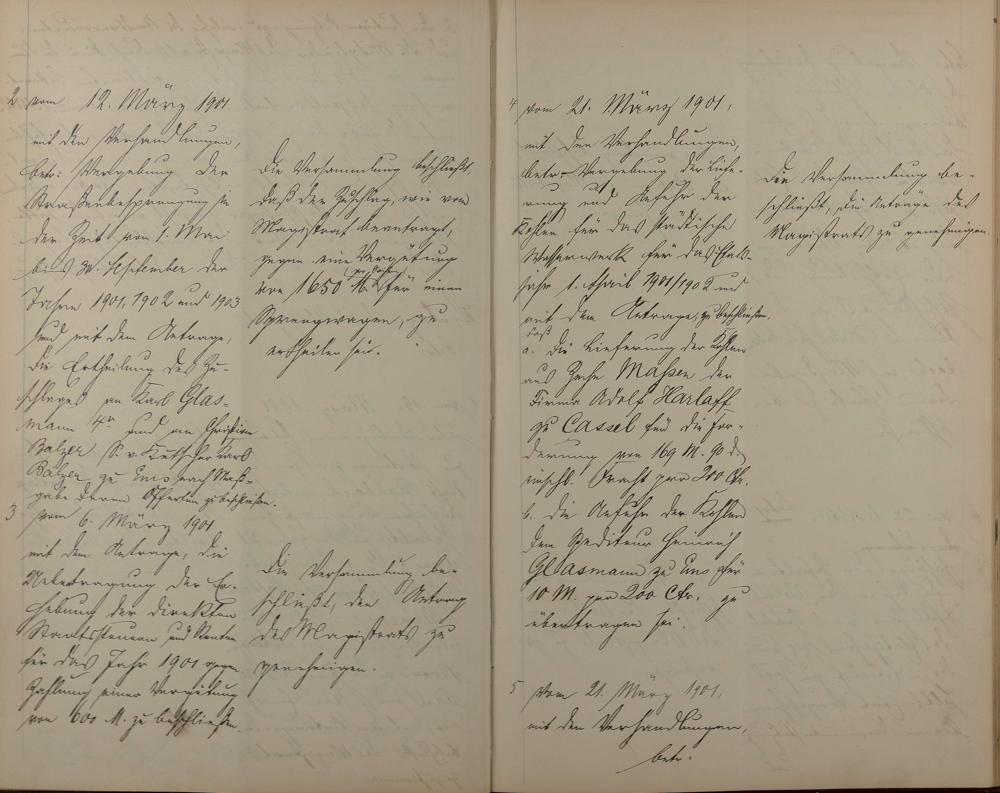 2 vom 12. März 1901
mit den Verhandlungen,
betr: Vergebung der
Straßenbesprengung in
der Zeit vom 1. Mai
bis 30. September der
Jahre 1901, 1902 und 1903
und mit dem Antrage,
die Ertheilung des Zu-
schlages an Karl Glas-
mann 4r und an Christian
Balzer S. v. Kutscher Karl
Balzer zu Ems nach Maß-
gabe deren Offerten zu beschließen.
Die Versammlung beschließt,
daß der Zuschlag, wie vom
Magistrat beantragt,
gegen eine Vergütung
von 1650 M. für einen
Sprengwagen, zu
ertheilen sei.
3 vom 6. März 1901
mit dem Antrage, die
Uebertragung der Er-
hebung der direkten
Staatssteuern und Renten
für das Jahr 1901 gegen
Zahlung einer Vergütung
von 600 M. zu beschließen
Die Versammlung be-
schließt, den Antrag
des Magistrats zu
genehmigen.
4 vom 21. März 1901,
mit den Verhandlungen,
betr. Vergebung der Liefe-
rung und Anfuhr der
Kohlen für das städtische
Wasserwerk für das Etats-
jahr 1. April 1901/1902 und
mit dem Antrage, zu beschließen,
daß
a. die Lieferung der Kohlen
aus Zeche Maßen der
Firma Adolf Harloff
zu Cassel für die For-
derung von 169 M. 90 d
einschl. Fracht pro 200 Ctr.
b. die Anfuhr der Kohlen
dem Spediteur Heinrich
Glasmann zu Ems für
10 M. pro 200 Ctr. zu
übertragen sei.
Die Versammlung be-
schließt, die Anträge des
Magistrats zu genehmigen.
5 Vom 21. März 1901,
mit den Verhandlungen,
betr.